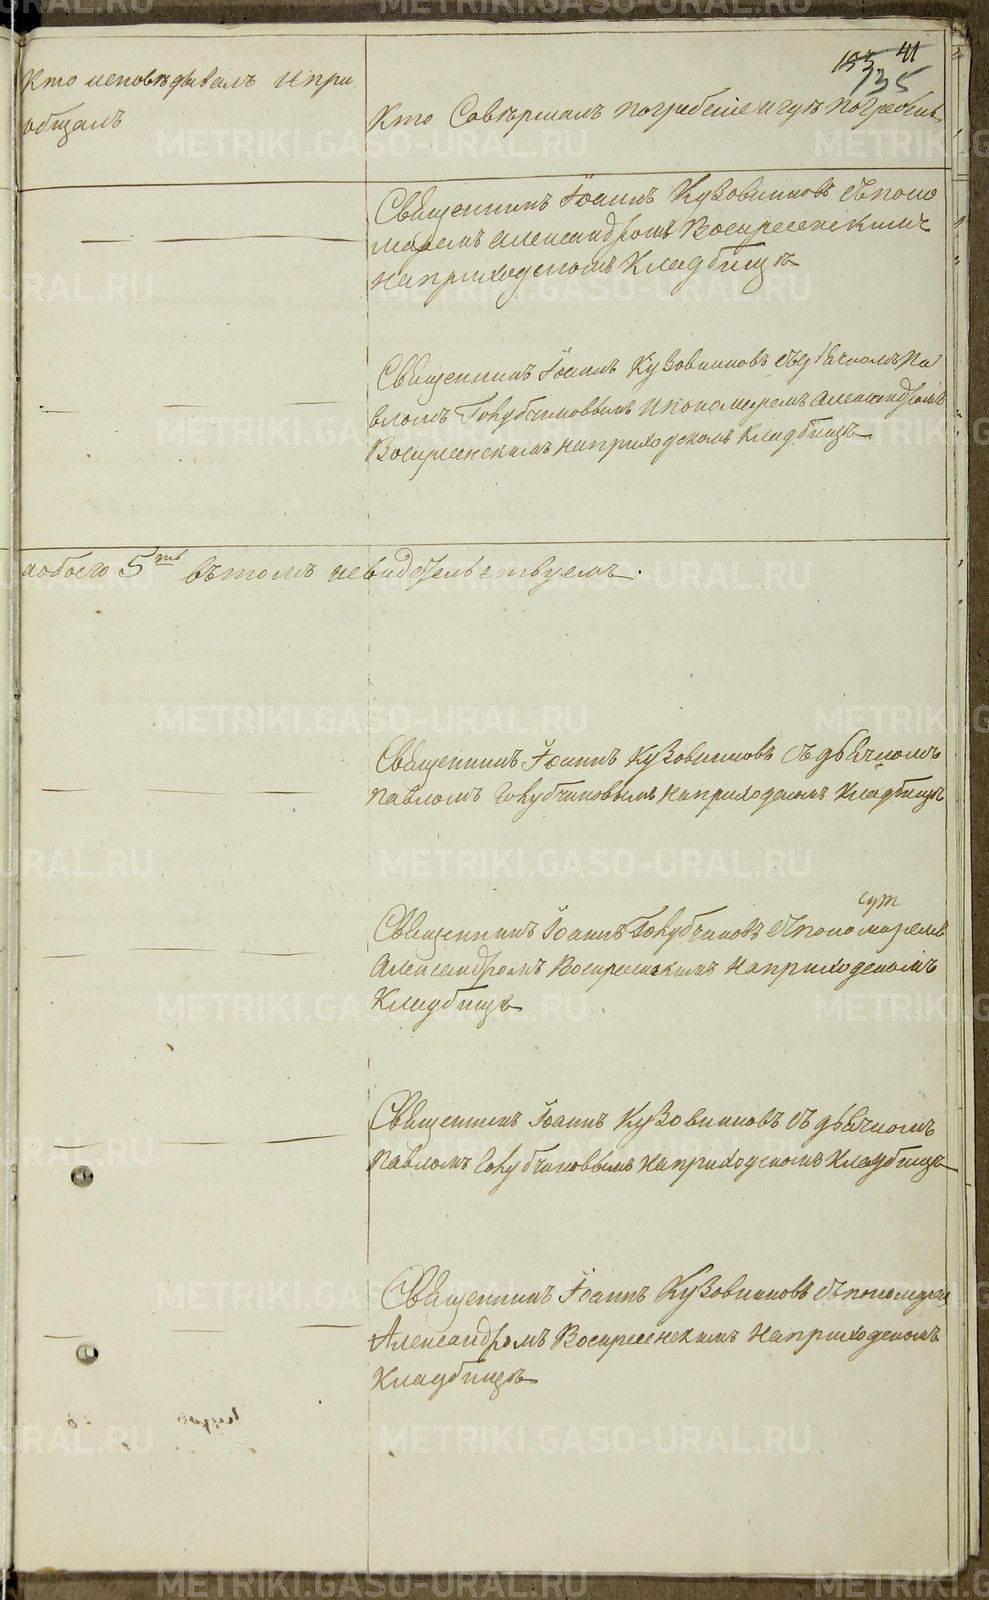 133 41
135
Кто исповѣдывалъ и прі
общалъ
Кто Совѣршалъ погребеніе и гдѣ погребенъ
Священникъ Іоаннъ Кузовниковъ съ поно
маремъ Александромъ Воскресенскимъ
на приходскомъ Кладбищѣ
Священникъ Іоаннъ Кузовниковъ съ дьячкомъ Па
вломъ Голубчиковымъ и пономаремъ Александромъ
Воскресенскимъ на приходскомъ Кладбищѣ
а обоего 5ть въ томъ свидетельствуемъ.
Священникъ Іоаннъ Кузовниковъ съ дьячкомъ
Павломъ Голубчиковымъ на приходскомъ Кладбищѣ
Священникъ Іоаннъ Голубчиковъ съ пономаремъ
Александромъ Воскресенскимъ на приходскомъ
Кладбищѣ
Священникъ Іоаннъ Кузовниковъ съ дьячкомъ
Павломъ Голубчиковымъ на приходскомъ Кладбищѣ
Священникъ Іоаннъ Кузовниковъ съ пономаремъ
Александромъ Воскресенскимъ на приходскомъ
Кладбищѣ
METRIKI.GASO-URAL.RU